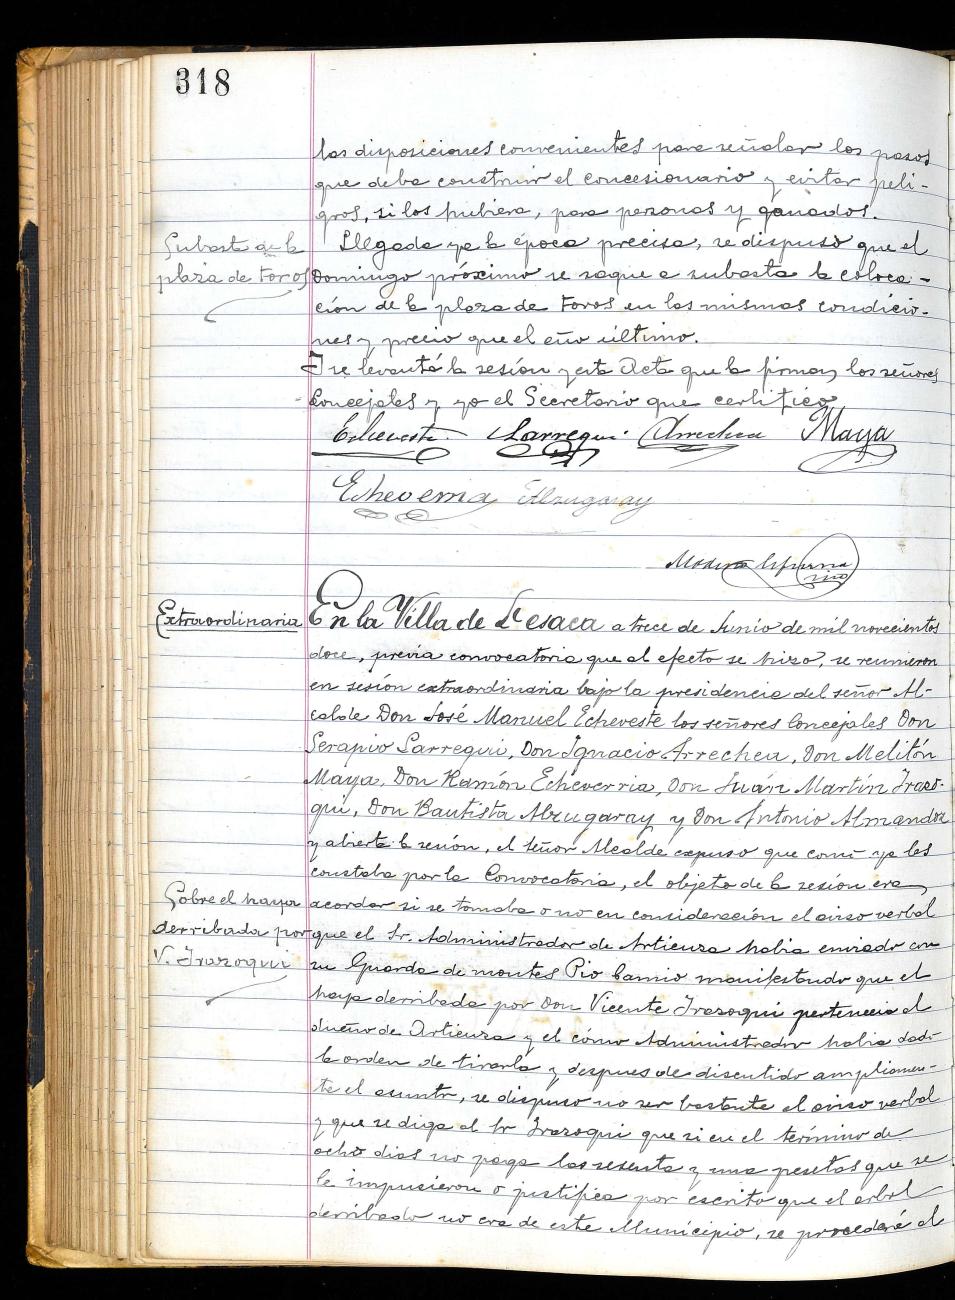 318
las disposiciones convenientes para señalar los pasos
que deba construir el concesionario y evitar peli-
gros, si los hubiera, para personas y ganados.
Subasta de la
plaza de Toros
Llegada ya la época precisa, se dispuso que el
Domingo próximo se saque a subasta la coloca-
ción de la plaza de Toros en las mismas condicio-
nes y precio que el año último.
Y se levantó la sesión y esta Acta que la firman los señores
Concejales y yo el Secretario que certifico
Echeveste. Larregui. Arrechea Maya
Echeverria Alzugaray
Extraordinaria
En la Villa de Lesaca a trece de Junio de mil novecientos
doce, previa convocatoria que al efecto se hizo, se reunieron
en sesión extraordinaria bajo la presidencia del señor Al-
calde Don José Manuel Echeveste los señores Concejales Don
Serapio Larregui, Don Ignacio Arrechea, Don Melitón
Maya, Don Ramón Echeverria, Don Juán Martín Irazo-
qui, Don Bautista Alzugaray y Don Antonio Almandoz
y abierta la sesión, el señor Alcalde expuso que como ya les
constaba por la Convocatoria, el objeto de la sesión era
Sobre el haya
derribada por
V. Irazoqui
acordar si se tomaba o no en consideración el aviso verbal
que el Sr. Administrador de Artieuza habia enviado con
su Guarda de montes Pio manifestando que el
haya derribada por Don Vicente Irazoqui pertenecia al
dueño de Artieuza y el cómo Administrador habia dado
la orden de tirarla y despues de discutido ampliamen-
te el asunto, se dispuso no ser bastante el aviso verbal
y que se diga al Sr Irazoqui que si en el término de
ocho dias no paga las sesenta y una pesetas que se
le impusieron o justifica por escrito que el arbol
derribado no era de este Municipio, se procederá al